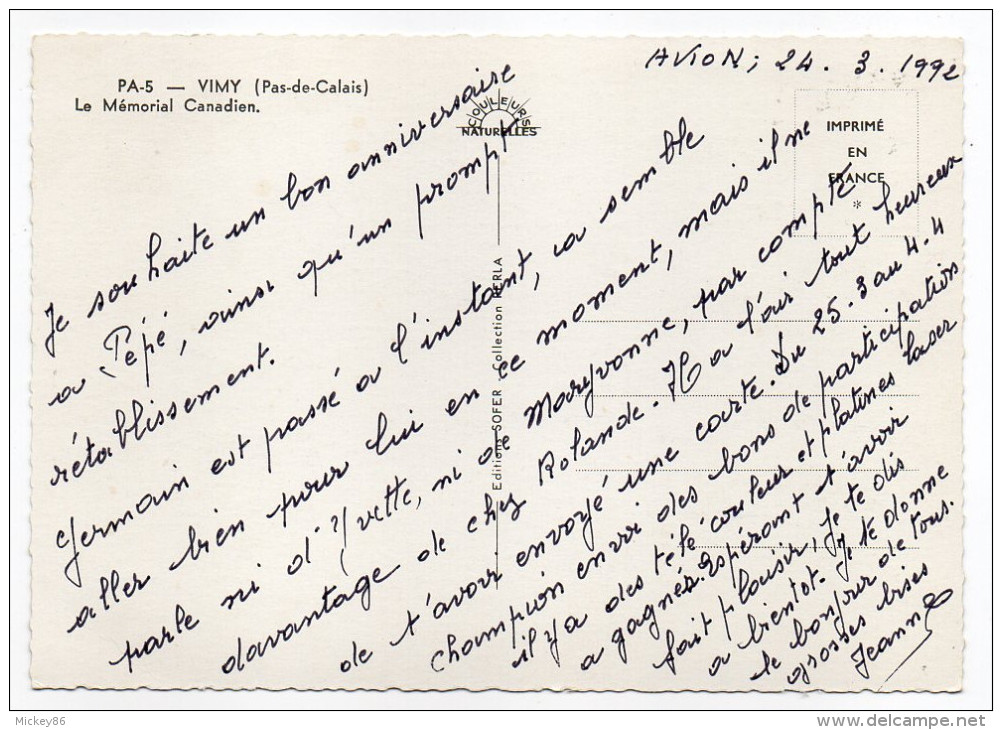 PA-5 — VIMY (Pas-de-Calais)
Le Mémorial Canadien.
COULEURS
NATURELLES
AVION, 24. 3. 1992
IMPRIMÉ
EN
FRANCE
*
Editions SOFER - Collection PERLA
Je souhaite un bon anniversaire
a Pépé, ainsi qu'un prompt
rétablissement.
Germain est passé a l'instant, ca semble
aller bien pour lui en ce moment, mais il ne
parle ni d'Yvette, ni de Maryvonne, par compte
davantage de chez Rolande. Il a l'air tout heureux
de t'avoir envoyé une carte. Du 25.3 au 4.4
Champion envoi des bons de participation
il y a des télé couleur et platines laser
a gagnés. Espérant t'avoir
fait plaisir, je te dis
a bientot. Je te donne
le bonjour de tous.
grosses bises
Jeanne
Mickey86
www.delcampe.net